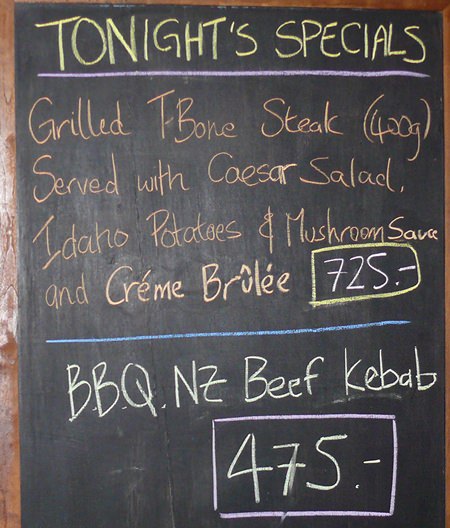 TONIGHT'S SPECIALS
Grilled T-Bone Steak (400g)
Served with Caesar Salad,
Idaho Potatoes & Mushroom Sauce
and Créme Brûlée 725.-
B.B.Q. NZ Beef Kebab
475.-